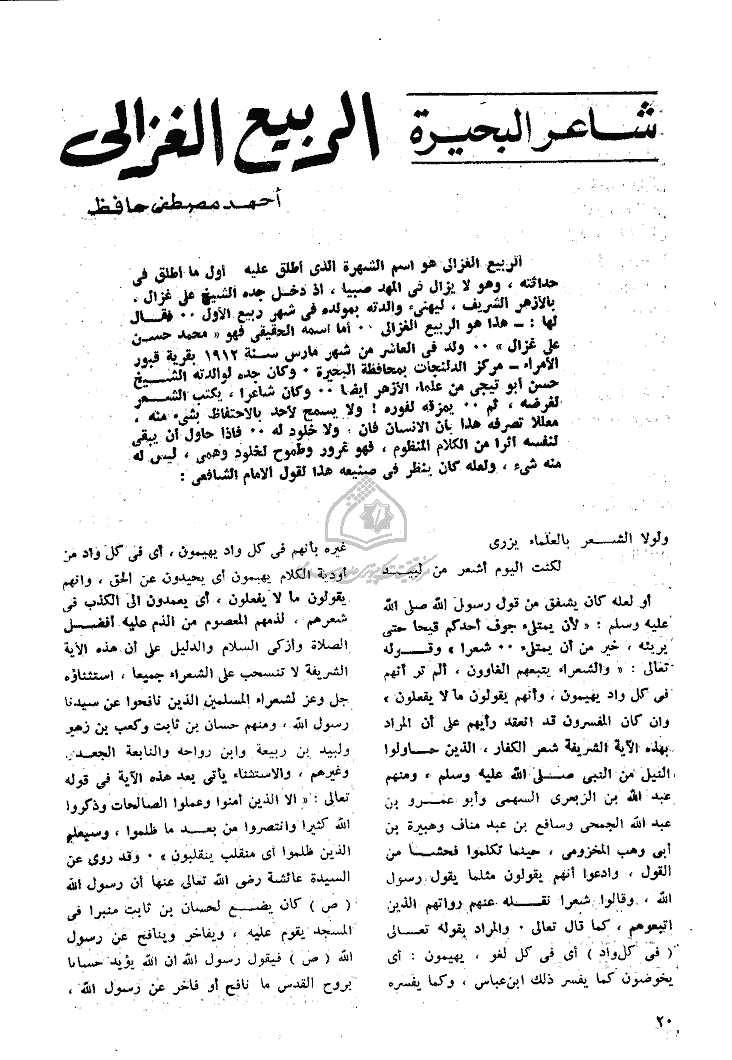 شاعر البحيرة
الربيع الغزالى
أحمد مصطفى حافظ
الربيع الغزالى هو اسم الشهرة الذى أطلق عليه أول ما أطلق فى
حداثته ، وهو لا يزال فى المهد صبيا ، اذ دخل جده الشيخ على غزال ،
بالأزهر الشريف ، ليهنىء والدته بمولده فى شهر ربيع الأول ٠٠ فقال
لها : ــ هذا هو الربيع الغزالى ٠٠ أما اسمه الحقيقى فهو « محمد حسن
على غزال » ٠٠ ولد فى العاشر من شهر مارس سنة ١٩١٢ بقرية قبور
الأمراء ــ مركز الدلنجات بمحافظة البحيرة ٠ وكان جده لوالدته الشيخ
حسن أبو تيجى من علماء الأزهر أيضا ٠٠ وكان شاعرا ، يكتب الشعر
لغرضه ، ثم ٠٠ يمزقه لفوره ! ولا يسمح لأحد بالاحتفاظ بشىء منه ،
معللا تصرفه هذا بأن الانسان فان ، ولا خلود له ٠٠ فاذا حاول أن يبقى
لنفسه أثرا من الكلام المنظوم ، فهو غرور وطموح لخلود وهمى ، ليس له
منه شىء ، ولعله كان ينظر فى صنيعه هذا لقول الامام الشافعى :
ولولا الشعر بالعلماء يزرى
لكنت اليوم أشعر من لبيد
أو لعله كان يشفق من قول رسول الله صلى الله
عليه وسلم : « لأن يمتلىء جوف أحدكم قيحا حتى
يريئه ، خير من أن يمتلىء ٠٠ شعرا » وقوله
تعالى : « والشعراء يتبعهم الغاوون ، ألم تر أنهم
فى كل واد يهيمون ، وأنهم يقولون ما لا يفعلون »
وان كان المفسرون قد انعقد رأيهم على أن المراد
بهذه الآية الشريفة شعر الكفار ، الذين حاولوا
النيل من النبى صلى الله عليه وسلم ، ومنهم
عبد الله بن الزبعرى السهمى وأبو عمرو بن
عبد الله الجمحى وسافع بن عبد مناف وهبيرة بن
أبى وهب المخزومى ، حينما تكلموا فحشا من
القول ، وادعوا أنهم يقولون مثلما يقول رسول
الله ، وقالوا شعرا نقله عنهم رواتهم الذين
اتبعوهم ، كما قال تعالى ٠ والمراد بقوله تعالى
( فى كل واد ) أى فى كل لغو ، يهيمون : أى
يخوضون كما يفسر ذلك ابن عباس ، وكما يفسره
غيره بأنهم فى كل واد يهيمون ، أى فى كل واد من
أودية الكلام يهيمون أى يحيدون عن الحق ، وانهم
يقولون ما لا يفعلون ، أى يعمدون الى الكذب فى
شعرهم ، لذمهم المعصوم من الذم عليه أفضل
الصلاة وأزكى السلام والدليل على أن هذه الآية
الشريفة لا تنسحب على الشعراء جميعا ، استثناؤه
جل وعز لشعراء المسلمين الذين نافحوا عن سيدنا
رسول الله ، ومنهم حسان بن ثابت وكعب بن زهير
ولبيد بن ربيعة وابن رواحه والنابعة الجعدى
وغيرهم ، والاستثناء يأتى بعد هذه الآية فى قوله
تعالى : « الا الذين آمنوا وعملوا الصالحات وذكروا
الله كثيرا وانتصروا من بعد ما ظلموا ، وسيعلم
الذين ظلموا أى منقلب ينقلبون » ٠ وقد روى عن
السيدة عائشة رضى الله تعالى عنها أن رسول الله
( ص ) كان يضع لحسان بن ثابت منبرا فى
المسجد يقوم عليه ، ويفاخر وينافح عن رسول
الله ( ص ) فيقول رسول الله ان الله يؤيد حسانا
بروح القدس ما نافح أو فاخر عن رسول الله ،
٢٠